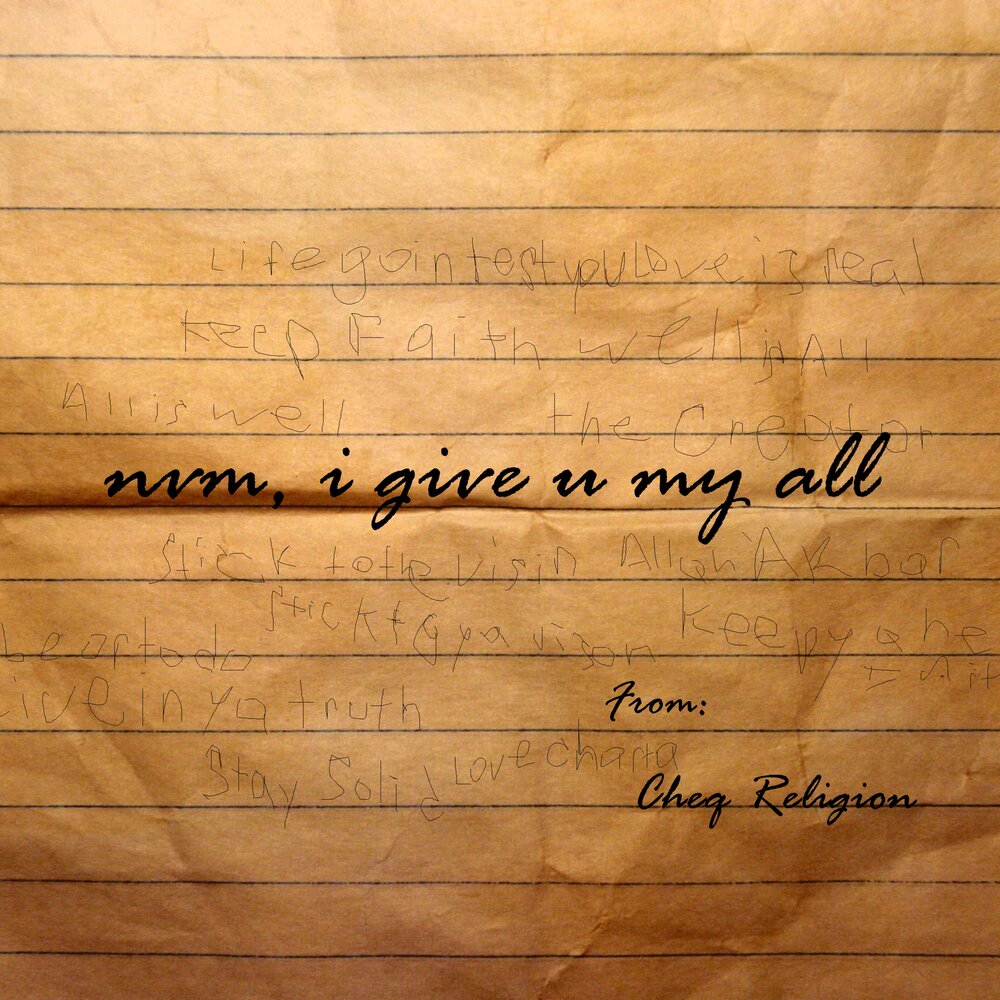 Life goin test you Love is real
Keep Faith well is All
All is well the Creator
nvm, i give u my all
Stick to the visin Allah Akbar
Stick to ya vison Keep ya he
be or to do
Live in ya truth
From:
Stay Solid Love
Cheq Religion